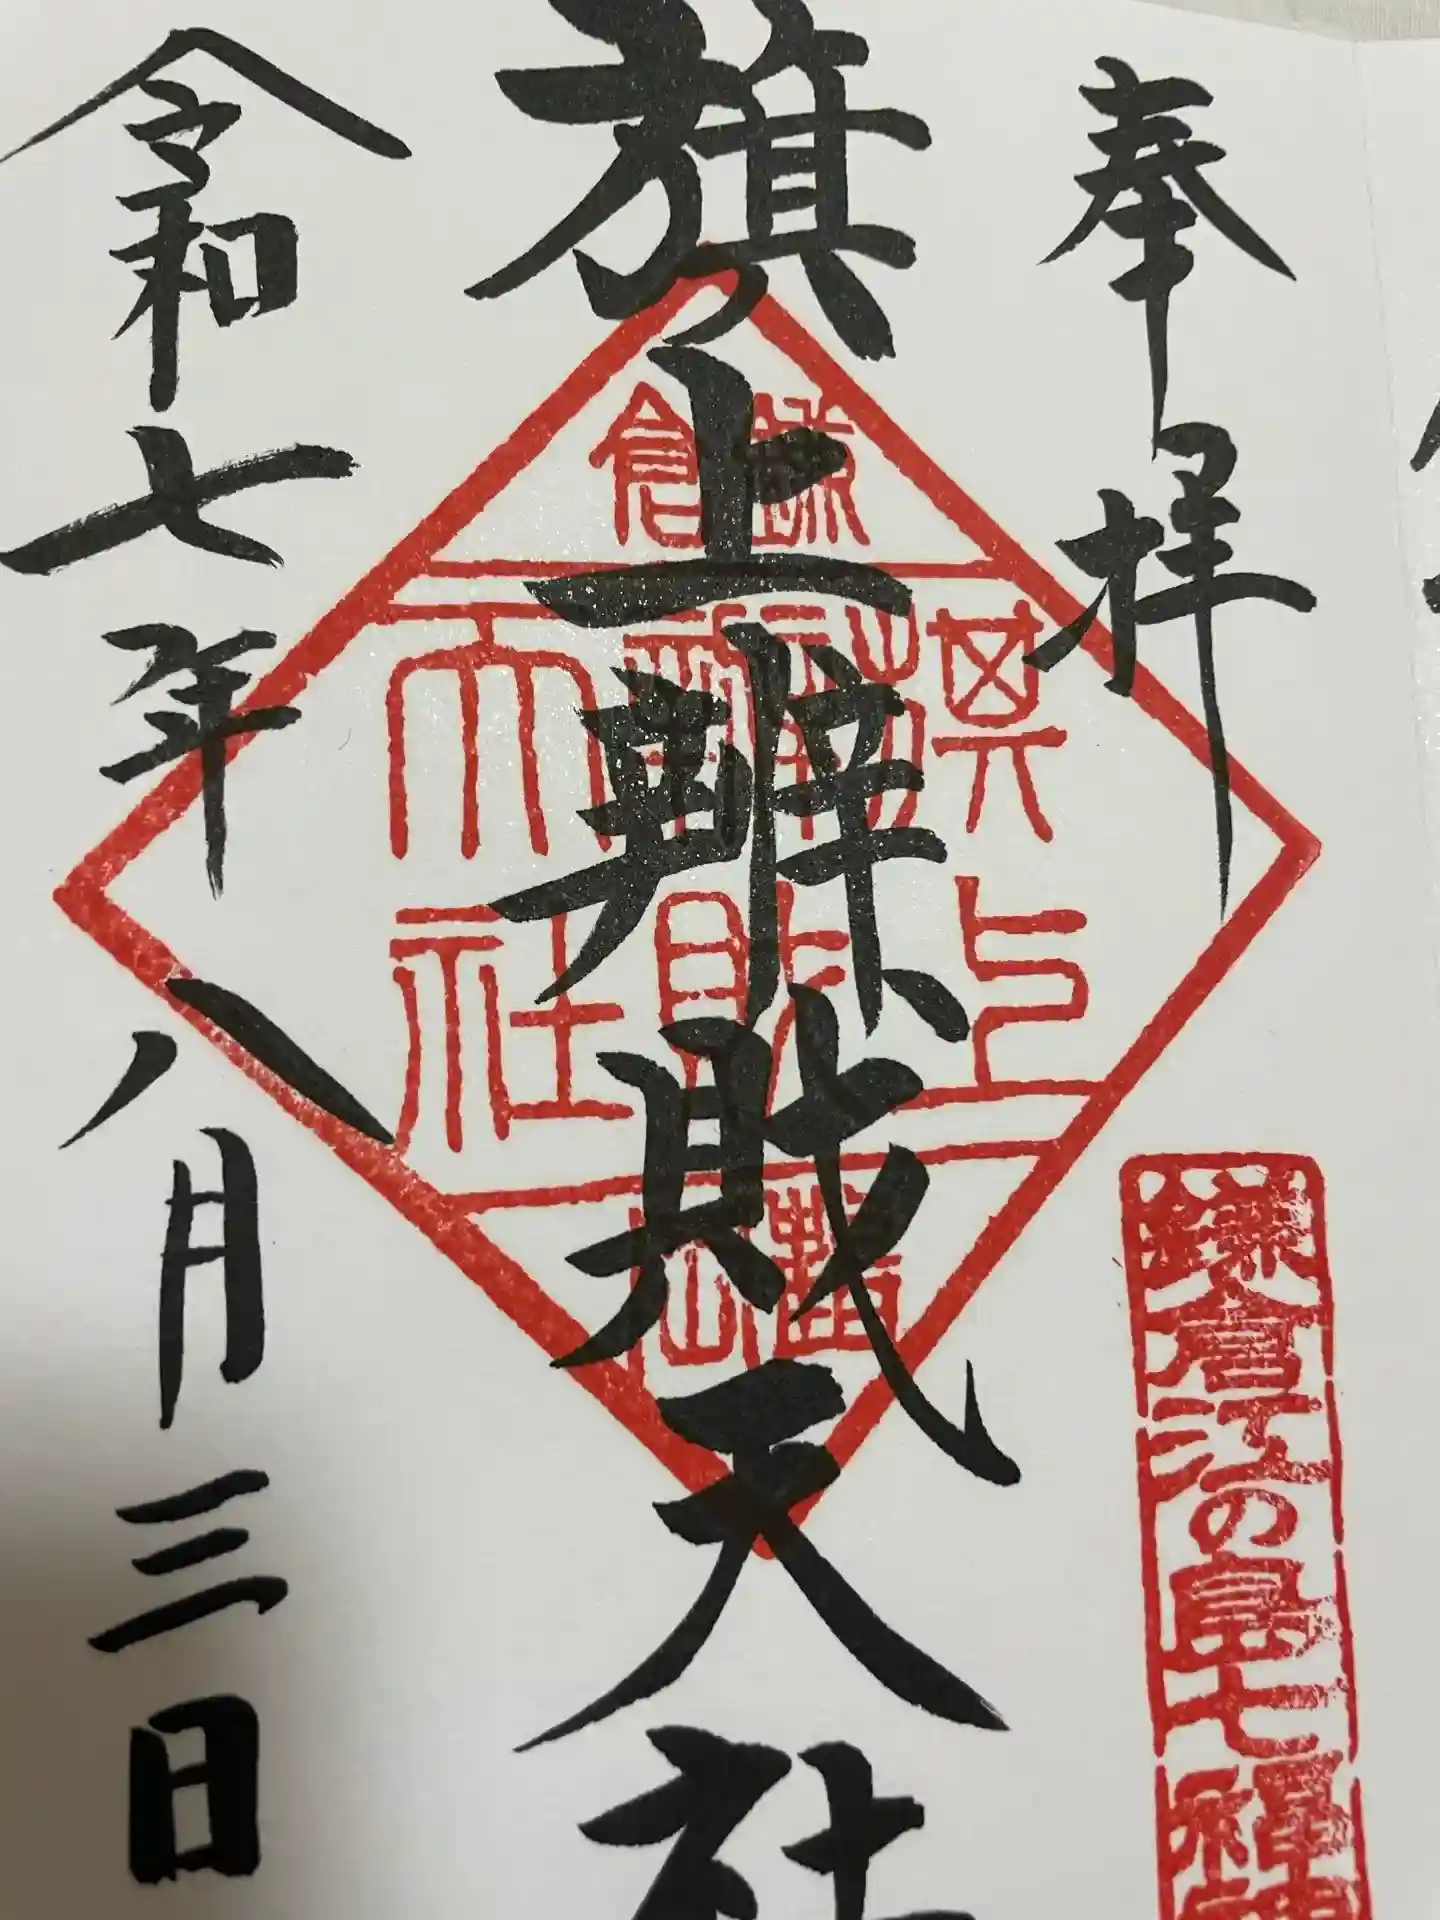 奉拝
鎌倉江の島七福神
旗上辨財天社
鎌倉
旗上
辨財
天社
令和七年八月三日